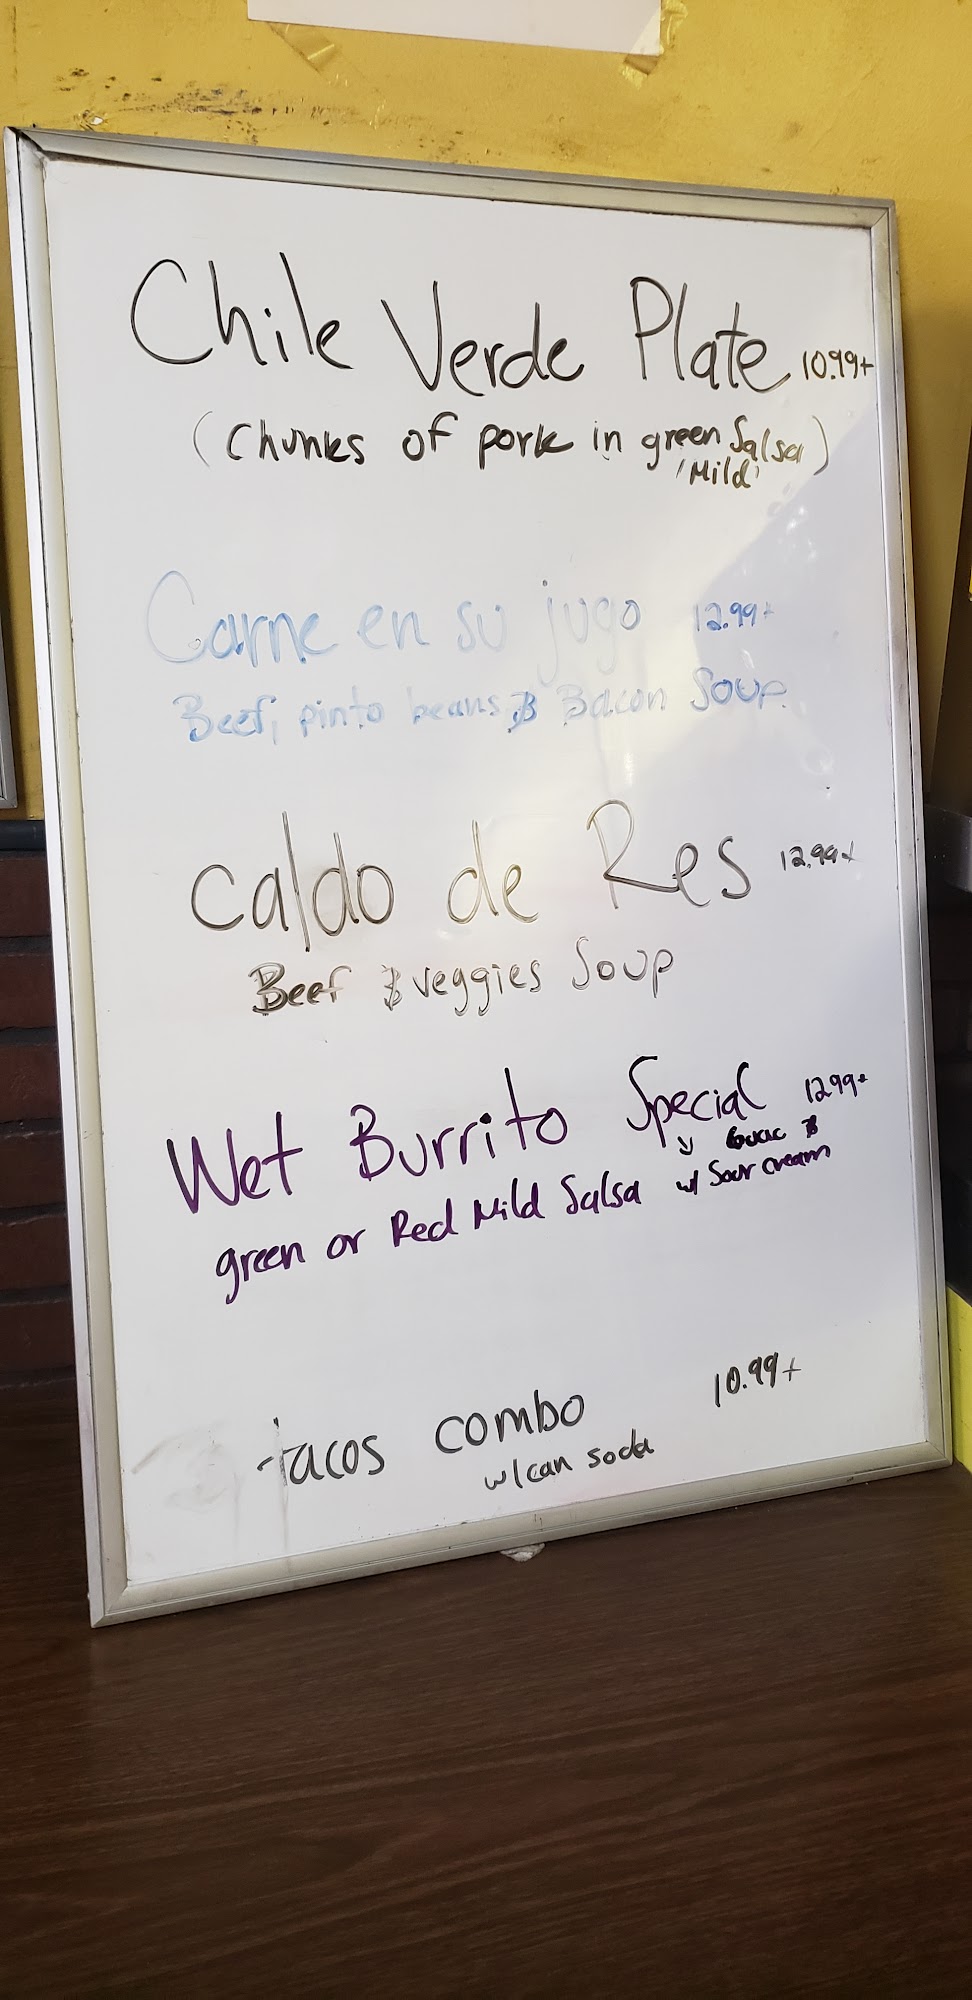 Chile Verde Plate 10.99+
(Chunks of pork in green Salsa)
'Mild'
Carne en su jugo 12.99+
Beef, pinto beans & Bacon Soup.
Caldo de Res 12.99+
Beef & veggies Soup
Wet Burrito Special 12.99+
Guac &
green or Red Mild Salsa w/ Sour cream
tacos combo 10.99+
w/can soda